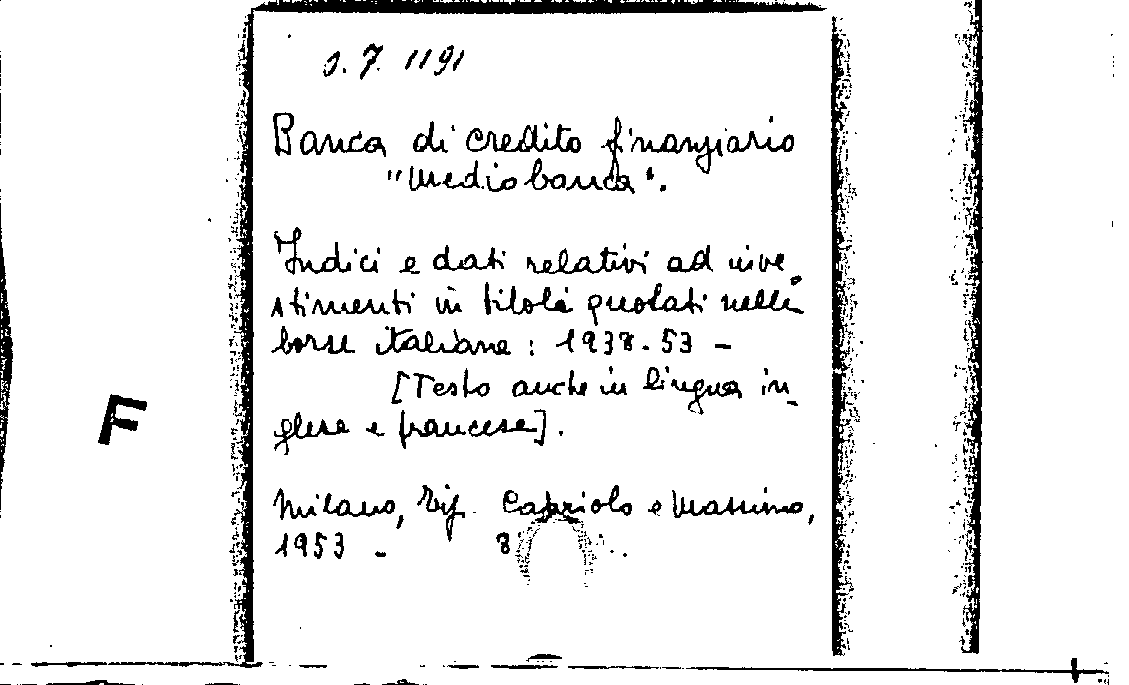 J. 7. 1191
Banca di credito finanziario
"Mediobanca".
Indici e dati relativi ad inve_
stimenti in titoli quotati nelle
borse italiane: 1938-53 -
[Testo anche in lingua in_
glese e francese].
F
Milano, Tip. Capriolo e Massimo,
1953 - 8